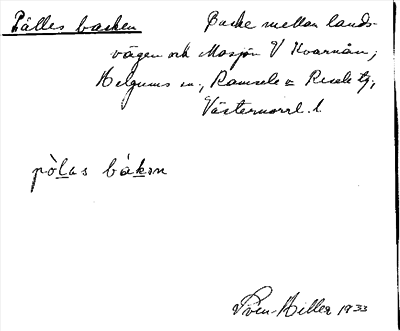 Pålles backen Backe mellan lands-
vägen och Masjön V Kvarnån,
Helgums sn, Ramsele o Resele tg,
Västernorrl. l.
pòlas bákɘn
Sven-Hiller 1933